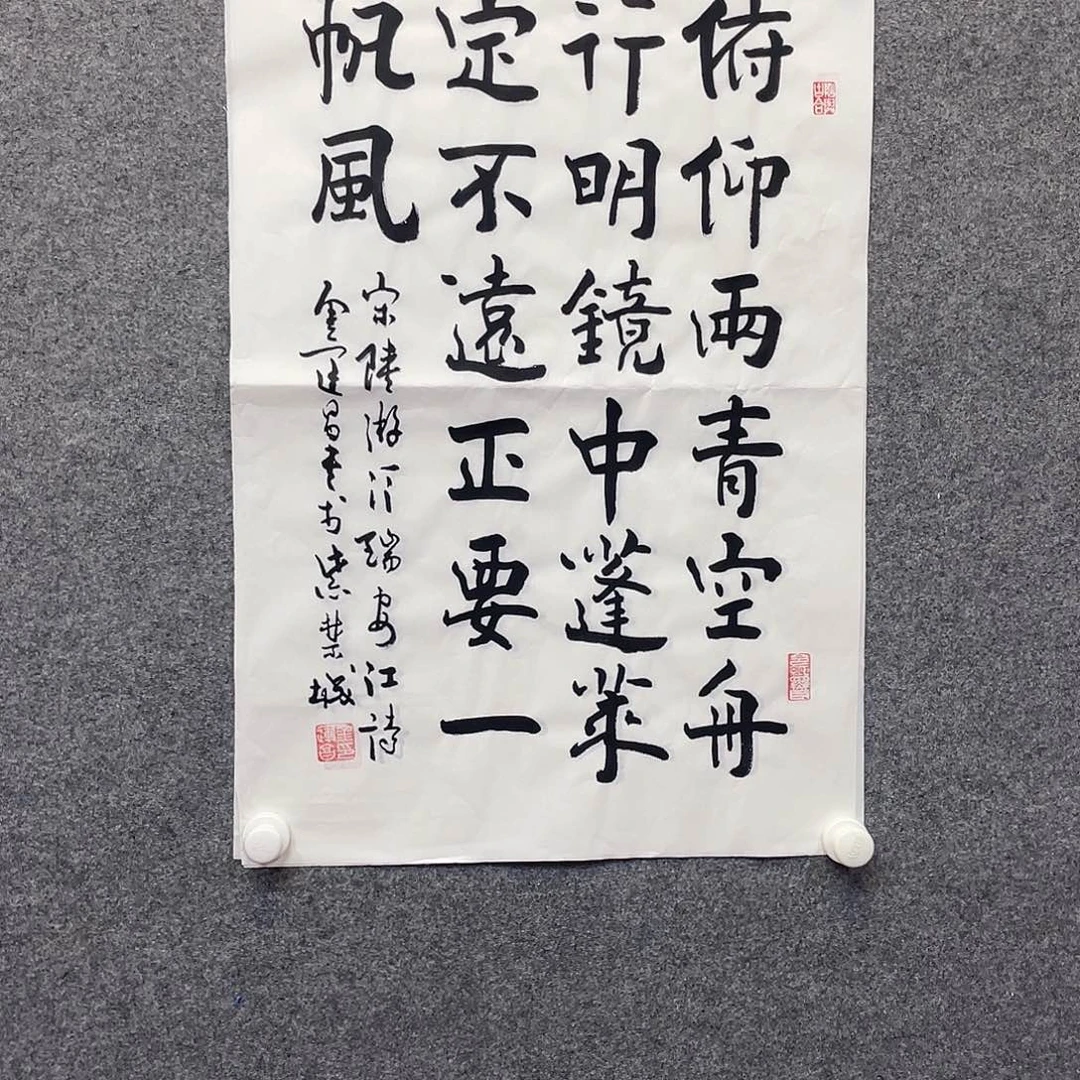 俯仰兩青空舟
行明鏡中蓬萊
定不遠正要一
帆風
宋陸游泛瑞安江詩
金運昌書於紫禁城